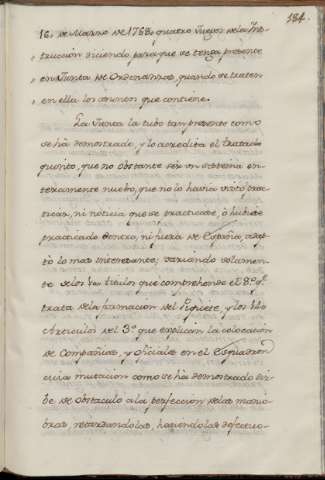 184.
16. de Marzo de 1768. quatro Juegos de la Ins-
truccion diciendo, para que se tenga presente
en Junta de Ordenanzas, quando se traten
en ella los asuntos que contiene.
La Junta la tubo tan presente como
se há demostrado, y lo acredita el tratado
quinto, que no obstante ser un sistema en-
teramente nuebo, que no lo havia visto prac-
ticar, ni noticia que se practicase, ó hubiese
practicado dentro, ni fuera de España, adap-
tó lo mas interesante, variando solamen-
te de los titulos que comprehende el 8.º qe.
trata de la formacion del y los
Articulos del 3.º que explican la colocacion
de Compañias, y oficiales en el Esquadron
cuia mutacion como se há demostrado sir-
be de obstaculo a la perfeccion de las manio-
bras retardandolas, haciendolas defectuo-